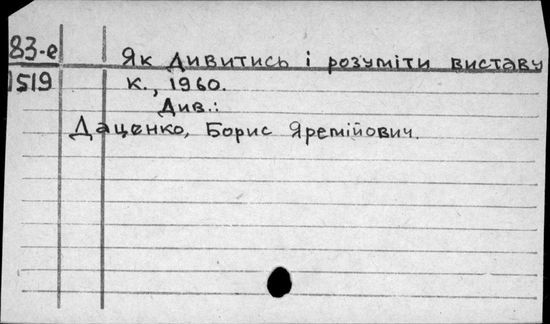 83-е Як дивитись і розуміти виставу
1519 К., 1960.
Див.:
Даценко, Борис Яремійович.